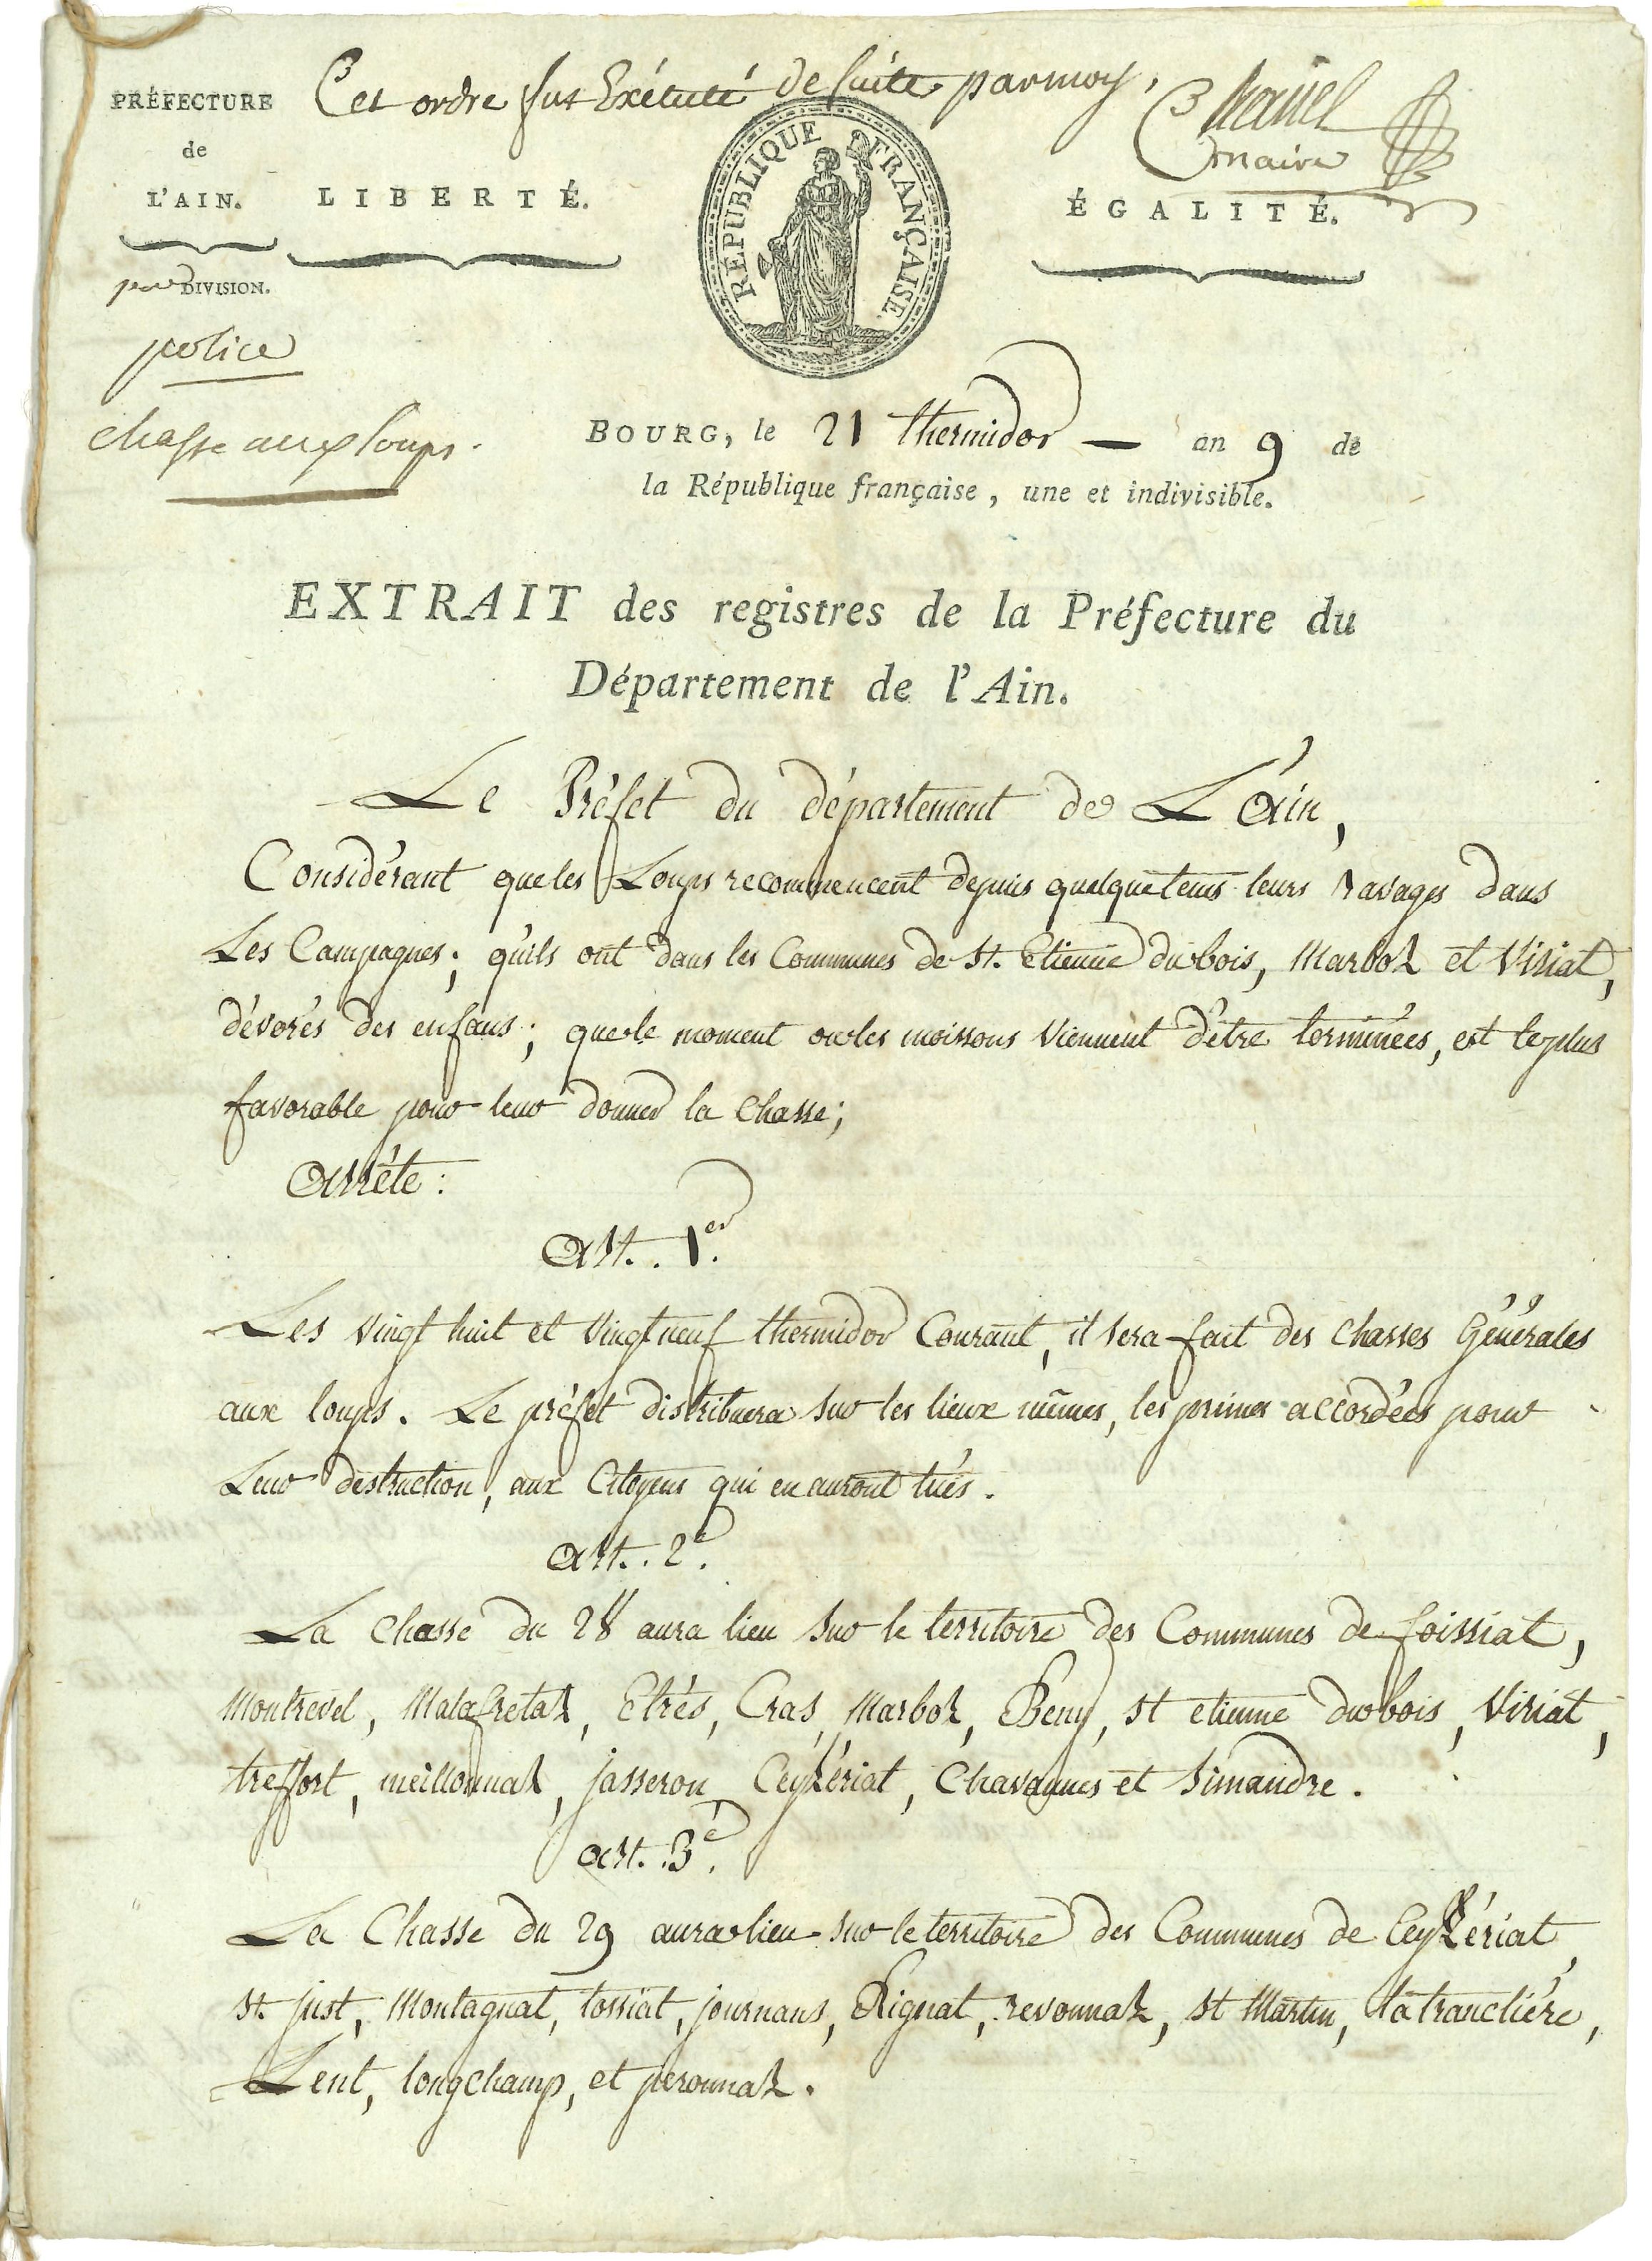 Cet ordre fut Exécuté de suite par moy,
maire
PRÉFECTURE
de
L'AIN.
LIBERTÉ.
RÉPUBLIQUE FRANÇAISE
ÉGALITÉ.
DIVISION.
police
chasse aux loups.
BOURG, le 21 thermidor — an 9 de
la République française, une et indivisible.
EXTRAIT des registres de la Préfecture du
Département de l'Ain.
Le Préfet du département de L'ain,
Considérant que les Loups recommencent depuis quelque tems leurs ravages dans
Les Campagnes; qu'ils ont dans les Communes de St. Etienne du bois, Marboz et Viriat,
dévorés des enfans; que le moment ou les moissons viennent d'être terminées, est le plus
favorable pour leur donner la chasse;
arrête:
art. 1er.
Les vingt huit et vingt neuf thermidor Courant, il sera fait des chasses Générales
aux loups. Le préfet distribuera sur les lieux mêmes, les primes accordées pour
Leur destruction, aux Citoyens qui en auront tués.
art. 2e.
La chasse du 28 aura lieu sur le territoire des Communes de foissiat,
Montrevel, Malafretaz, Etrés, Cras, Marboz, Bény, st etienne du bois, Viriat,
treffort, meillonnaz, jasseron, Ceyzériat, Chavannes et Simandre.
art. 3e.
La Chasse du 29 aura lieu sur le territoire des Communes de Ceyzériat,
St. just, Montagnat, tossiat, journans, Rignat, revonnaz, st Martin, la tranclière,
Lent, longchamp, et peronnaz.